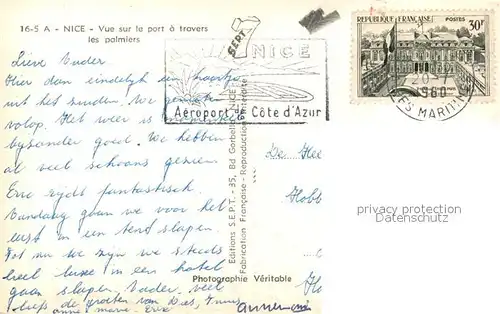 16-5 A - NICE - Vue sur la port à travers
les palmiers
SEPT
NICE
Aéroport de Côte d'Azur
RÉPUBLIQUE FRANÇAISE POSTES
30F
1960
ES MARITIMES
Lieve Vader
Hier dan eindelijk een kaartje
uit het zuiden. We genieten
volop. Het weer is
bijzonder goed. We hebben
al veel schoons gezien
Eric rijdt fantastisch.
Vandaag gaan we voor het
eerst in een tent slapen.
Tot nu we zijn we steeds
heel luxe in een hotel
gaan slapen. Vader, veel
liefs de groeten van
anne marie Eric
annemarie
Editions S.E.P.T. - 35, Bd Gorbella - NICE
Fabrication Française - Reproduction interdite
De Hee
Hobb
Photographie Véritable
Ho
privacy protection
Datenschutz